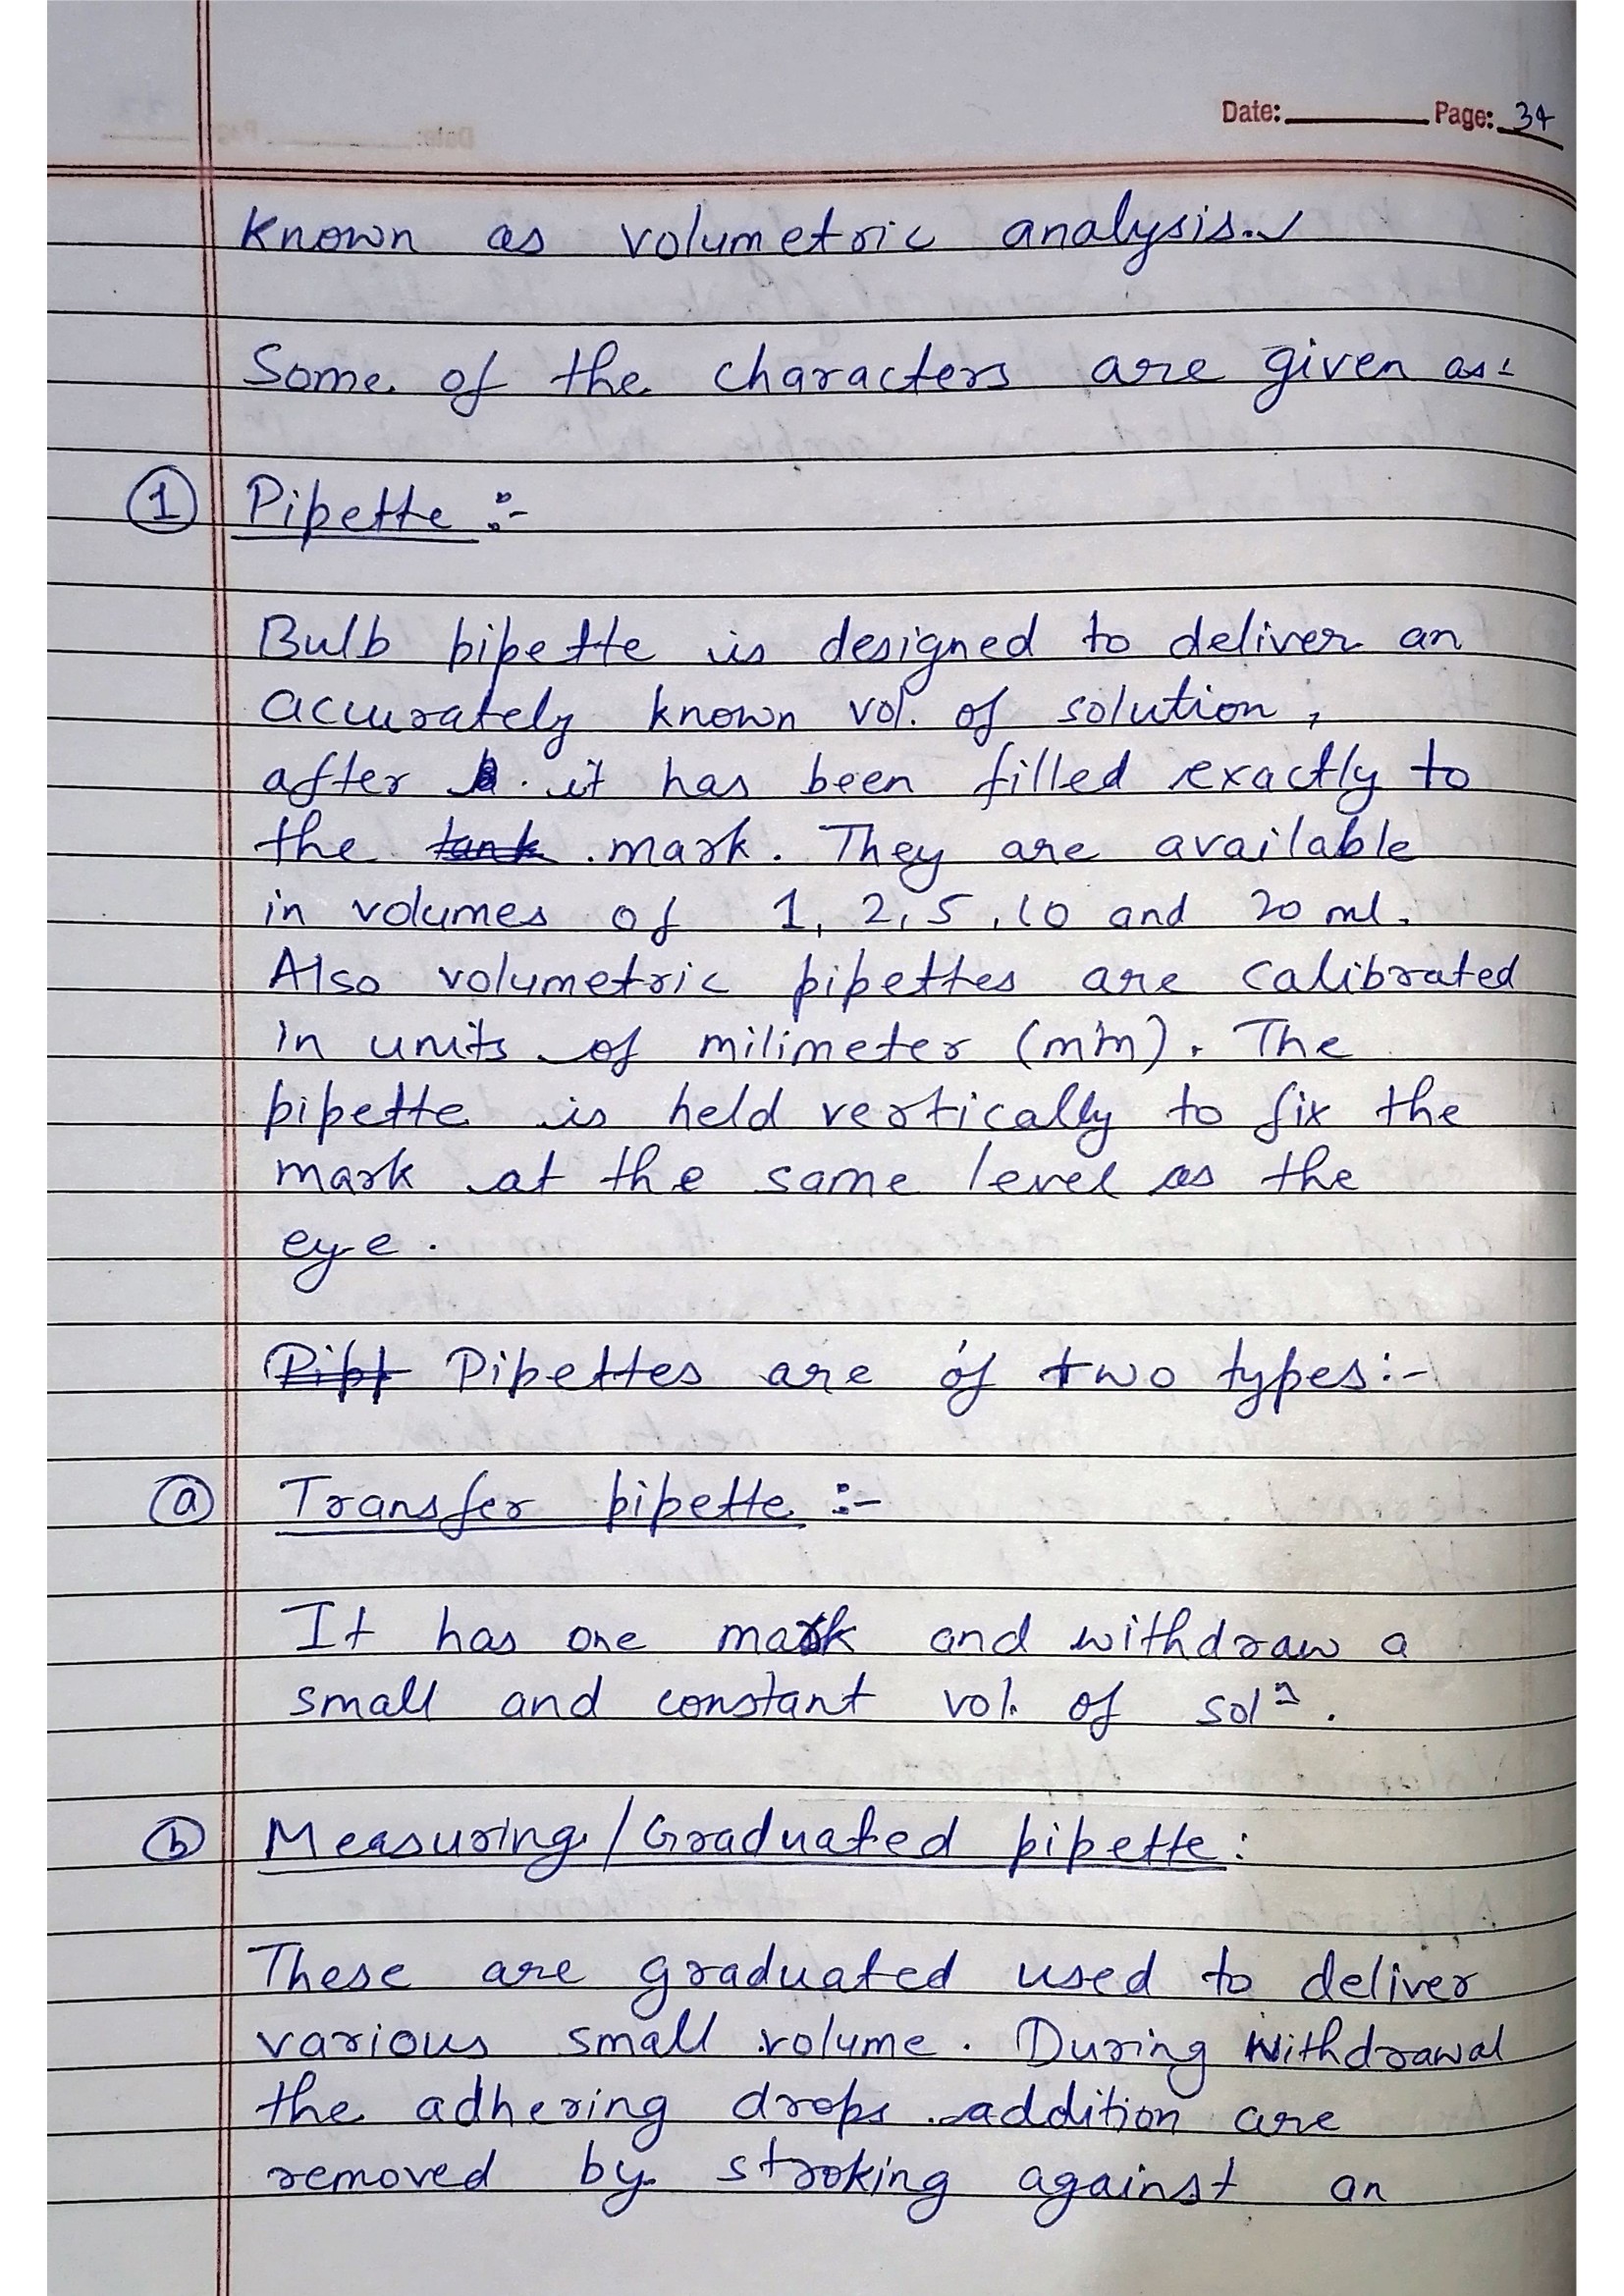 Date: Page: 34
Known as volumetric analysis.
Some of the characters are given as:
1 Pipette :-
Bulb pipette is designed to deliver an
accurately known vol. of solution,
after it has been filled exactly to
the mark. They are available
in volumes of 1, 2, 5, 10 and 20 ml.
Also volumetric pipettes are calibrated
in units of milimeter (mm). The
pipette is held vertically to fix the
mark at the same level as the
eye.
Pipettes are of two types:-
a Transfer pipette :-
It has one mark and withdraw a
small and constant vol. of solⁿ.
b Measuring/Graduated pipette:
These are graduated used to deliver
various small volume. During Withdrawal
the adhering drops addition are
removed by stroking against an